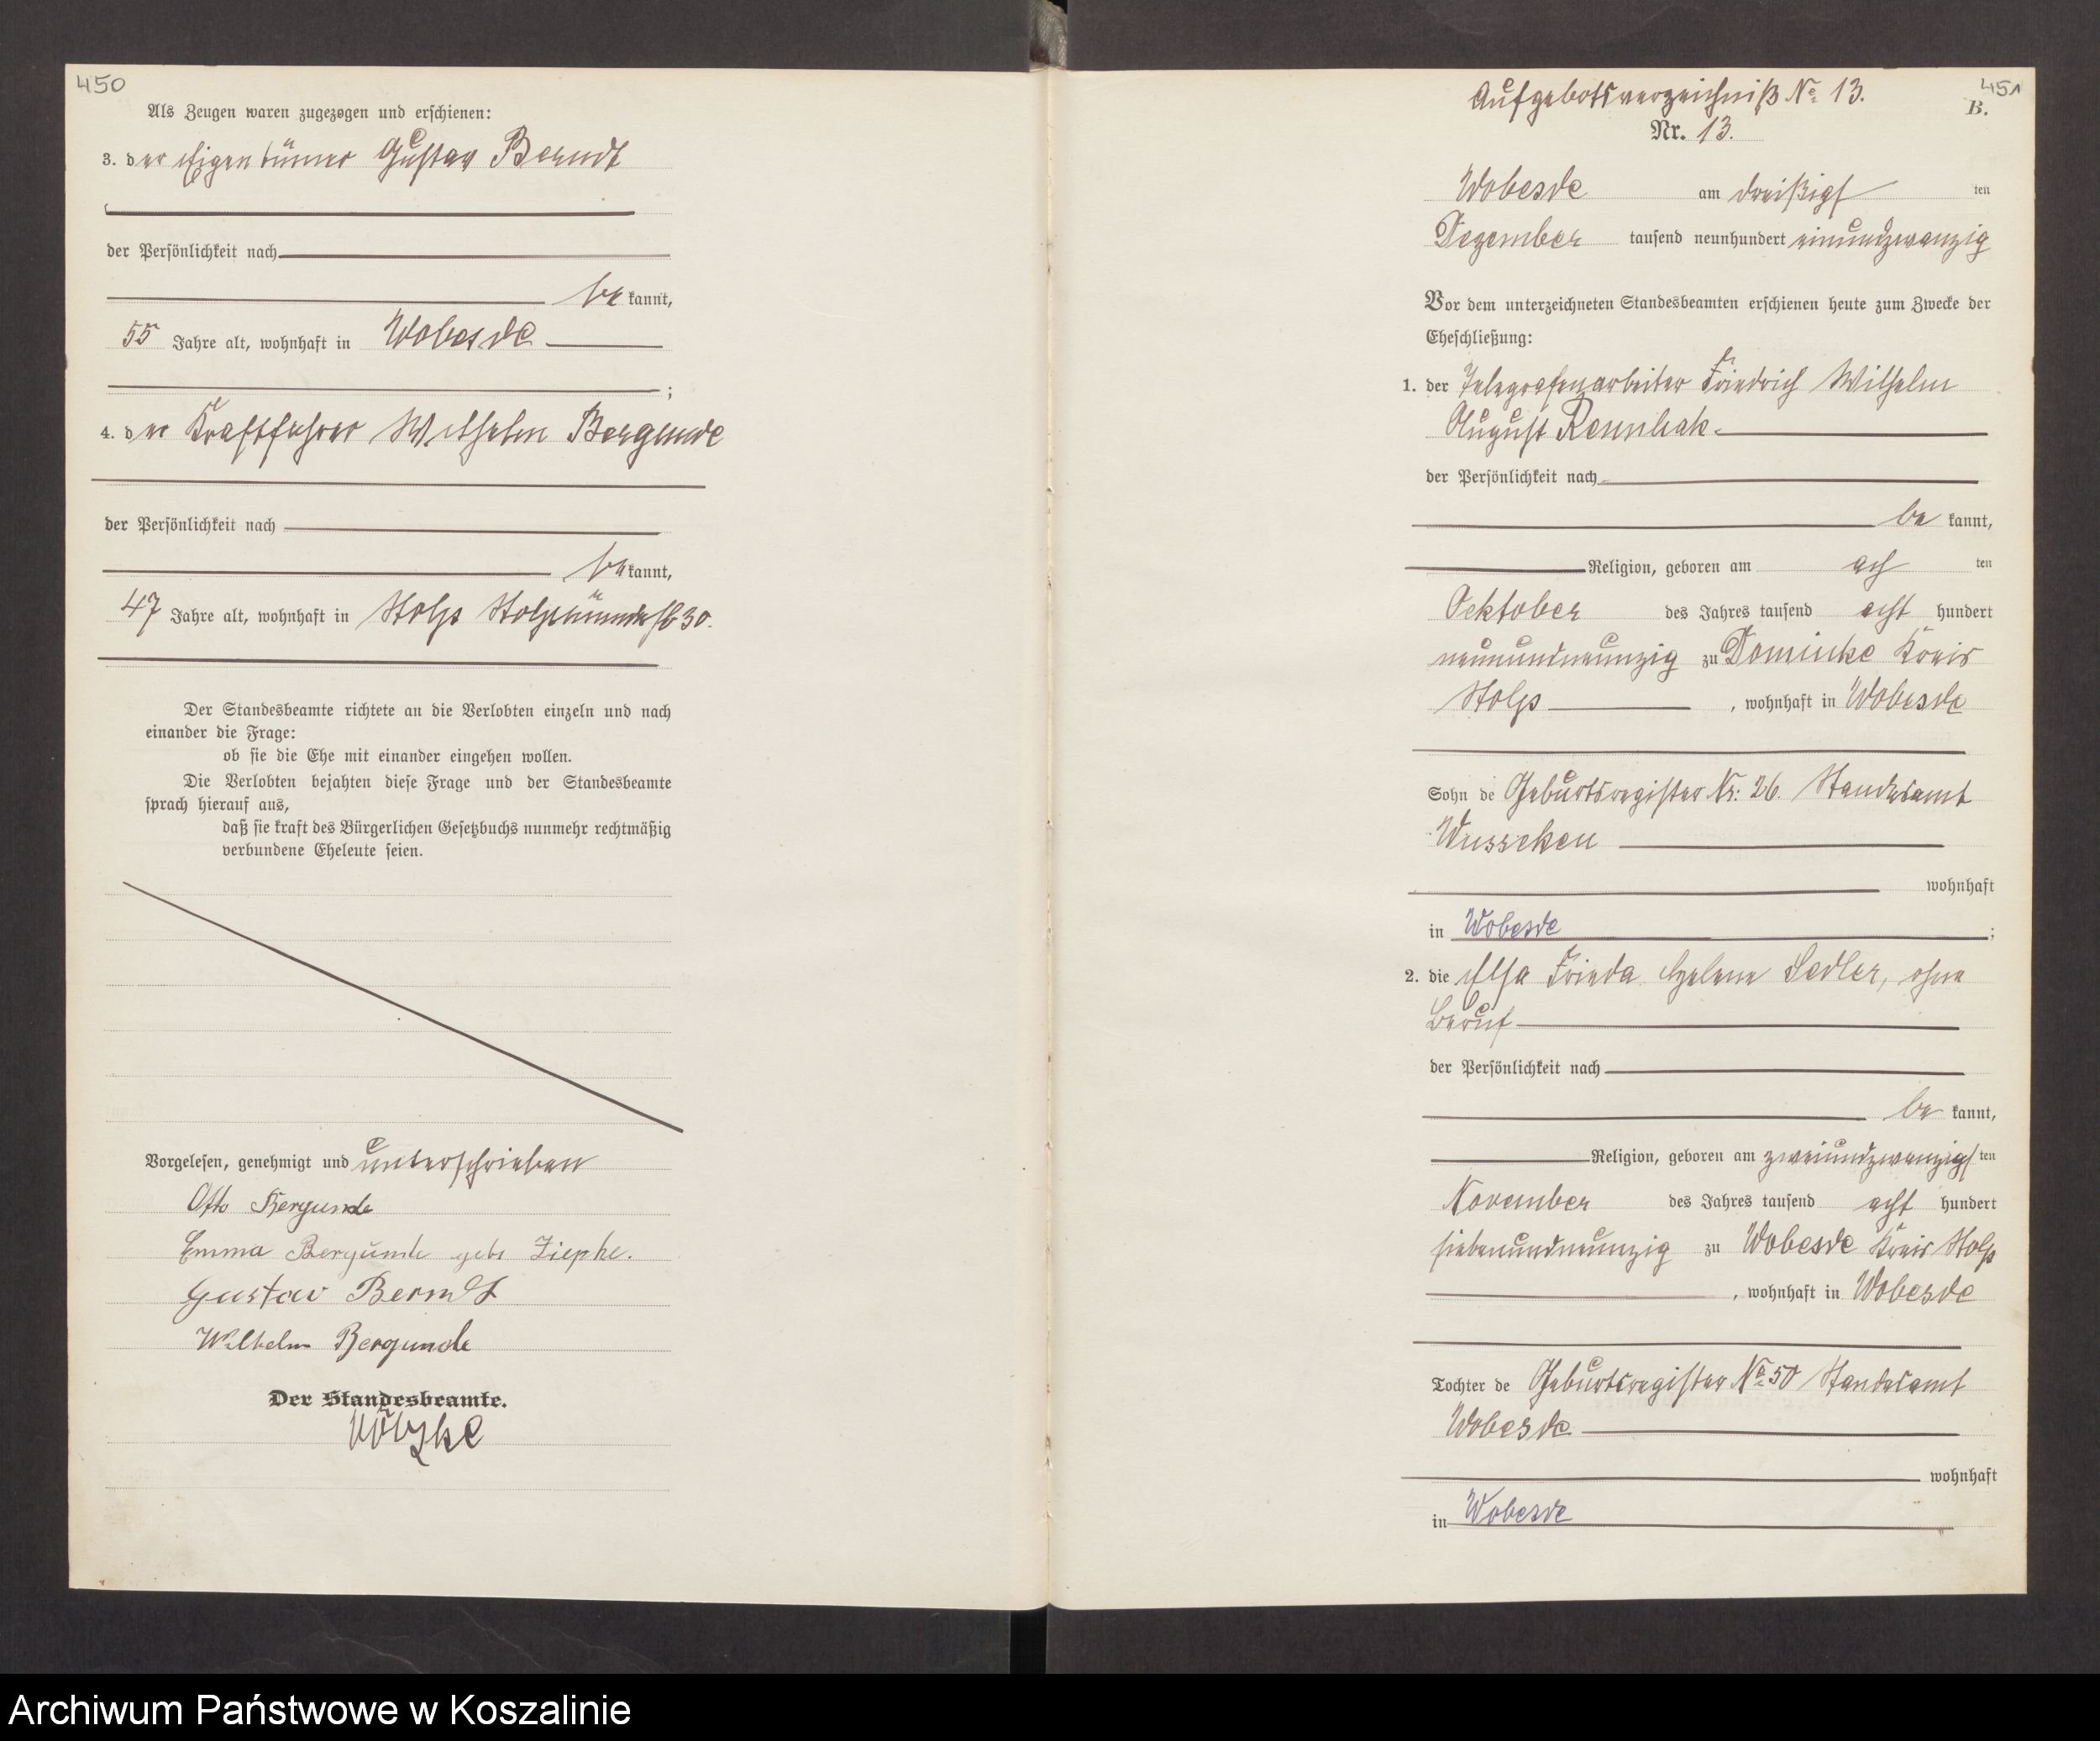 450
Als Zeugen waren zugezogen und erschienen:
3. der Eigentümer Gustav Berndt
der Persönlichkeit nach
be kannt,
55 Jahre alt, wohnhaft in Wobesde
;
4. der Kraftfahrer Wilhelm Bergunde
der Persönlichkeit nach
be kannt,
47 Jahre alt, wohnhaft in Stolp Stolpmünderstr 30.
Der Standesbeamte richtete an die Verlobten einzeln und nach
einander die Frage:
ob sie die Ehe mit einander eingehen wollen.
Die Verlobten bejahten diese Frage und der Standesbeamte
sprach hierauf aus,
daß sie kraft des Bürgerlichen Gesetzbuchs nunmehr rechtmäßig
verbundene Eheleute seien.
Vorgelesen, genehmigt und unterschrieben
Otto Bergunde
Emma Bergunde geb. Ziepke.
Gustav Berndt
Wilhelm Bergunde
Der Standesbeamte.
451
Aufgebotsverzeichniß No 13.
B.
Nr. 13.
Wobesde am dreißigst ten
Dezember tausend neunhundert einundzwanzig
Vor dem unterzeichneten Standesbeamten erschienen heute zum Zwecke der
Eheschließung:
1. der Telegrafenarbeiter Friedrich Wilhelm
August Rennhak
der Persönlichkeit nach
be kannt,
Religion, geboren am ach ten
Ocktober des Jahres tausend acht hundert
neunundneunzig zu Dominke Kreis
Stolp, wohnhaft in Wobesde
Sohn de Geburtsregister Nr: 26. Standesamt
Wusseken
wohnhaft
in Wobesde ;
2. die Elsa Frieda Helene Sedler, ohne
Beruf
der Persönlichkeit nach
be kannt,
Religion, geboren am zweiundzwanzigs ten
November des Jahres tausend acht hundert
siebenundneunzig zu Wobesde Kreis Stolp
, wohnhaft in Wobesde
Tochter de Geburtsregister No 50 Standesamt
Wobesde
wohnhaft
in Wobesde
Archiwum Państwowe w Koszalinie